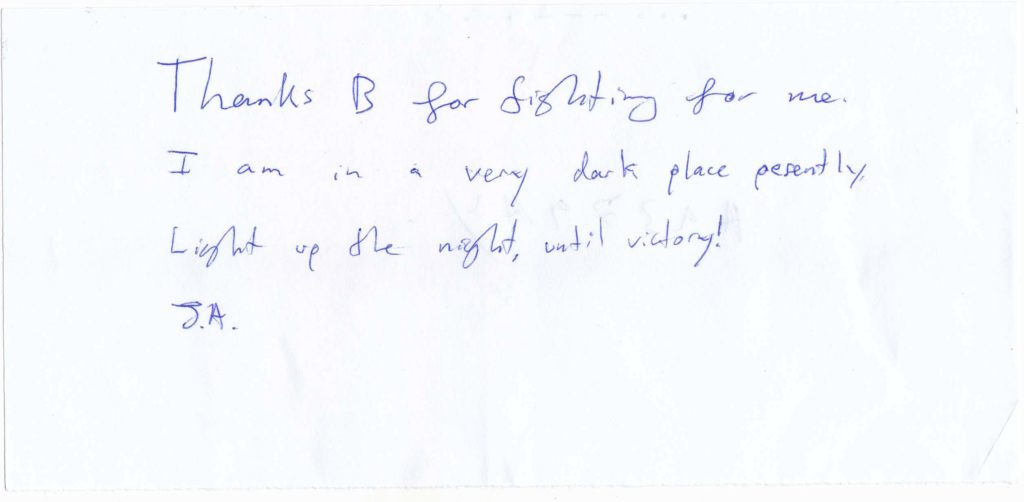 Thanks B for fighting for me.
I am in a very dark place pesently,
Light up the night, until victory!
J.A.